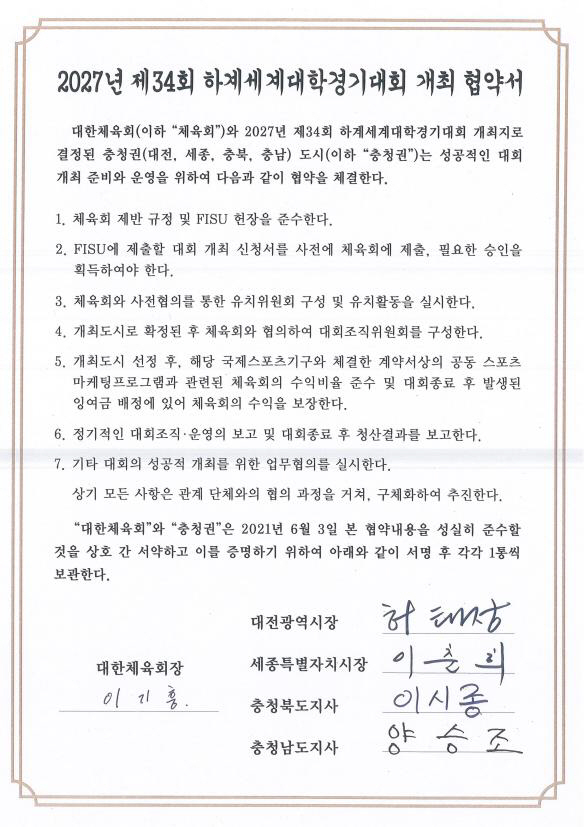 2027년 제34회 하계세계대학경기대회 개최 협약서
대한체육회(이하 “체육회”)와 2027년 제34회 하계세계대학경기대회 개최지로
결정된 충청권(대전, 세종, 충북, 충남) 도시(이하 “충청권”)는 성공적인 대회
개최 준비와 운영을 위하여 다음과 같이 협약을 체결한다.
1. 체육회 제반 규정 및 FISU 헌장을 준수한다.
2. FISU에 제출할 대회 개최 신청서를 사전에 체육회에 제출, 필요한 승인을
획득하여야 한다.
3. 체육회와 사전협의를 통한 유치위원회 구성 및 유치활동을 실시한다.
4. 개최도시로 확정된 후 체육회와 협의하여 대회조직위원회를 구성한다.
5. 개최도시 선정 후, 해당 국제스포츠기구와 체결한 계약서상의 공동 스포츠
마케팅프로그램과 관련된 체육회의 수익비율 준수 및 대회종료 후 발생된
잉여금 배정에 있어 체육회의 수익을 보장한다.
6. 정기적인 대회조직·운영의 보고 및 대회종료 후 청산결과를 보고한다.
7. 기타 대회의 성공적 개최를 위한 업무협의를 실시한다.
상기 모든 사항은 관계 단체와의 협의 과정을 거쳐, 구체화하여 추진한다.
“대한체육회”와 “충청권”은 2021년 6월 3일 본 협약내용을 성실히 준수할
것을 상호 간 서약하고 이를 증명하기 위하여 아래와 같이 서명 후 각각 1통씩
보관한다.
대전광역시장 허태정
세종특별자치시장 이춘희
대한체육회장
이기흥.
충청북도지사 이시종
충청남도지사 양승조